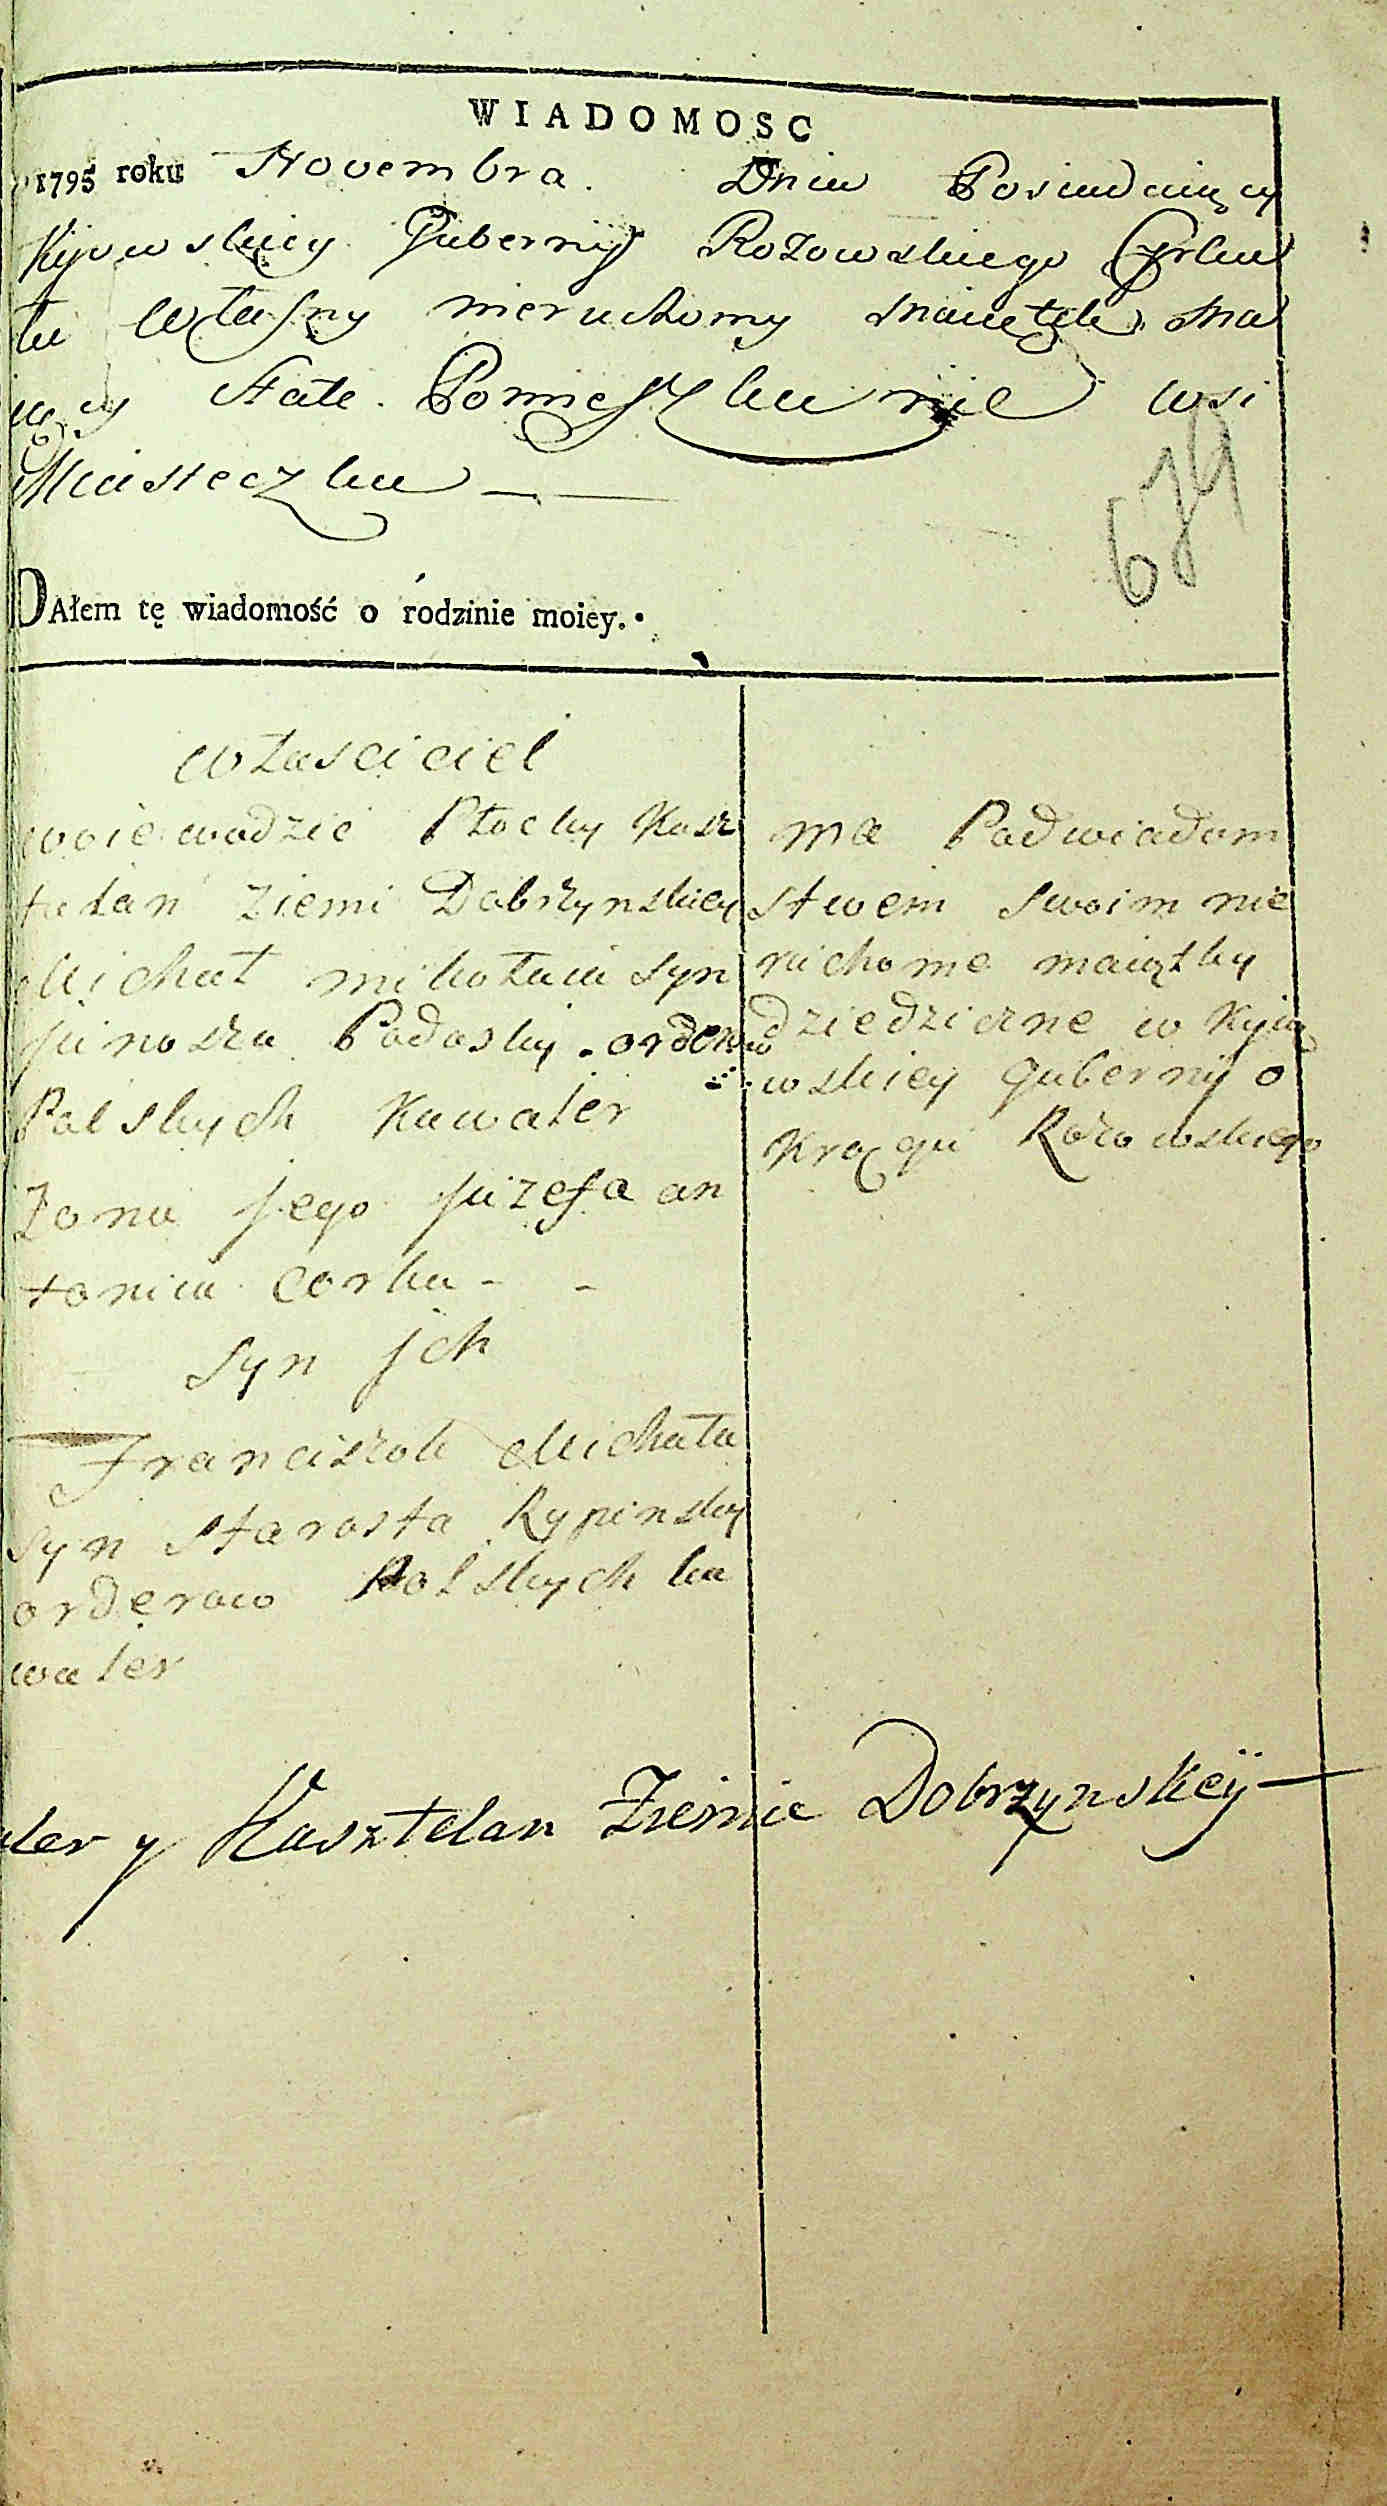 WIADOMOSC
1795 roku Novembra. Dnia Posiadaiący
Kijowskiey Gubernij Rożowskiego Cyrku
łu własny nieruchomy Maiątek Ma
iący stałe Pomieszkanie wsi
Miasteczku
679
DAłem tę wiadomość o rodzinie moiey.
własciciel
woiewodzic Płocky Kasz
telan ziemi Dobrzynskiey
Michał mikołaia syn
junosza Podosky orderow
Polskych Kawaler
Zona jego juzefa an
tonia corka
Syn jch
Franciszek Michała
Syn starosta Rypinsky
orderow Polskych ka
waler
ma Pod wiadom
stwem swoim nie
ruchome maiątky
dziedziczne w Kyio
wskiey gubernij o
Kręgu Rożowskiego
aler y Kasztelan Ziemie Dobrzynskey